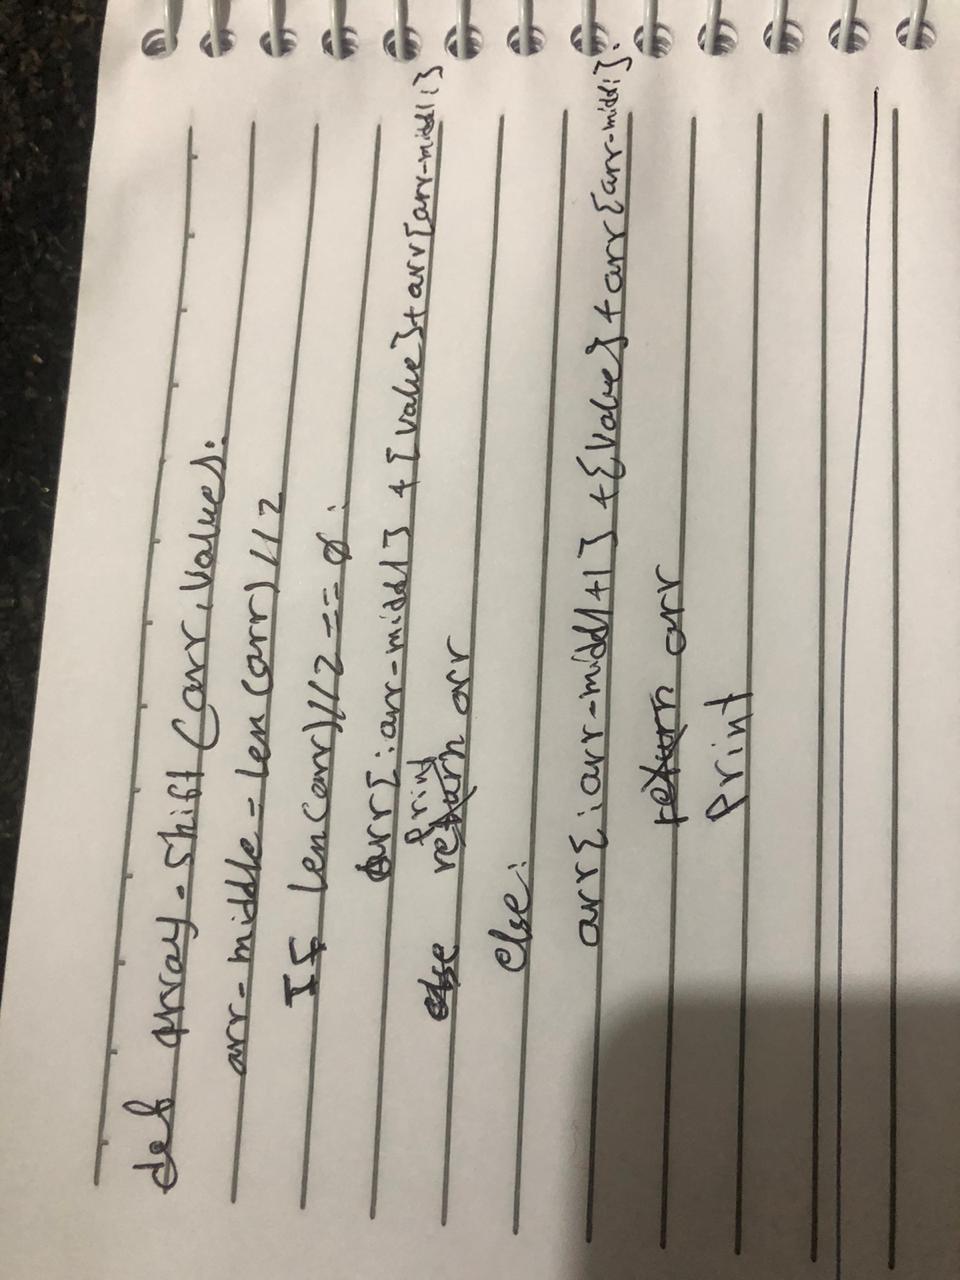 def array-shift (arr, values.
arr-middle = len(arr)//2
If len(arr)//2 == 0 :
arr[:arr-middl] + [value]+arr[arr-middl:]
print
return arr
else
else:
arr[:arr-middl+1] +[value] + arr[arr-middl:].
return arr
print